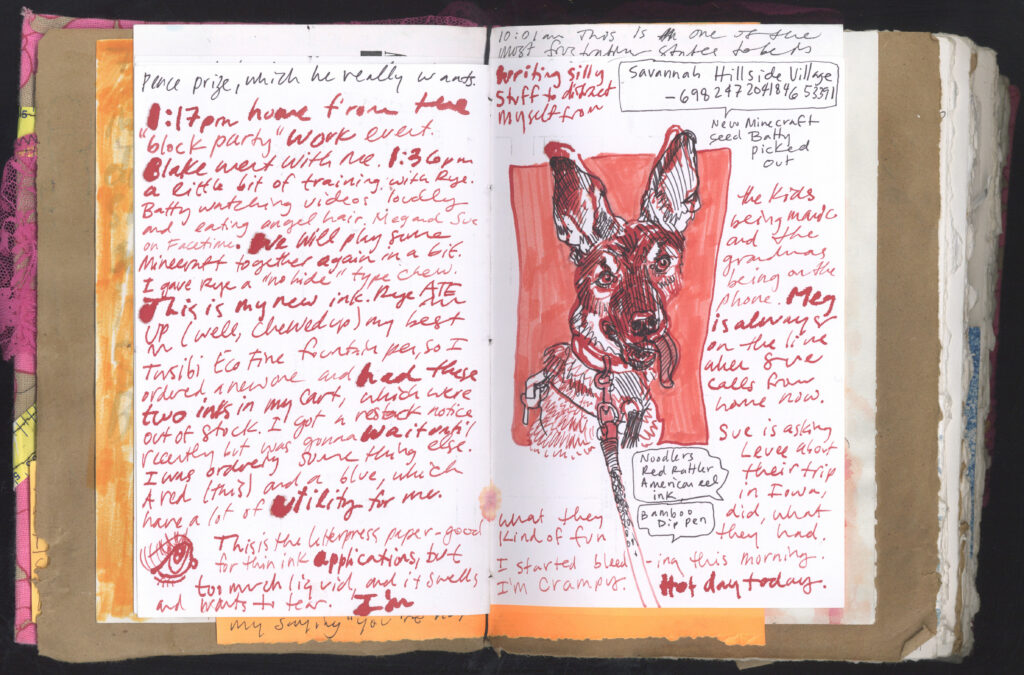 Peace prize, which he really wants.
1:17pm home from the
"block party" work event.
Blake went with me. 1:36pm
a little bit of training with Rye.
Batty watching videos loudly
and eating angel hair. Meg and Sue
on Facetime. We will play some
Minecraft together again in a bit.
I gave Rye a "no hide" type chew.
This is my new ink. Rye ATE
UP (well, chewed up) my best
Twsibi Eco Fine fountain pen, so I
ordered a new one and had these
two inks in my cart, which were
out of stock. I got a restock notice
recently but was gonna wait until
I was ordering something else.
A red (this) and a blue, which
have a lot of utility for me.
This is the letterpress paper - good
for thin ink applications, but
too much liquid, and it swells
and wants to tear. I'm
my saying "you're
10:01am This is one of the
most frustrating states to be in
writing silly
stuff to distract
myself from
Savannah Hillside Village
-698247204184653391
New Minecraft
seed Batty
picked
out
the kids
being manic
and the
grandmas
being on the
phone. Meg
is always
on the line
when Sue
calls from
home now.
Sue is asking
Levee about
their trip
in Iowa,
what they did, what
kind of fun they had.
Noodlers
Red Rattler
American eel
ink
Bamboo
Dip pen
I started bleed-ing this morning.
I'm Crampy. Hot day today.